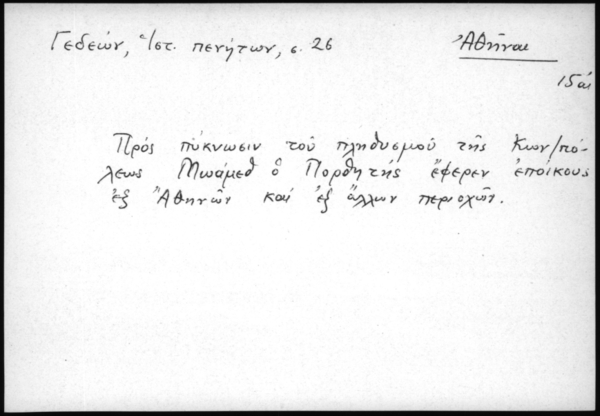 Γεδεών, Ἱστ. πενήτων, σ. 26
Ἀθῆναι
15ος
Πρός πύκνωσιν τοῦ πληθυσμοῦ τῆς Κων/πό-
λεως Μωάμεθ ὁ Πορθητής ἔφερεν ἐποίκους
ἐξ Ἀθηνῶν καί ἐξ ἄλλων περιοχῶν.